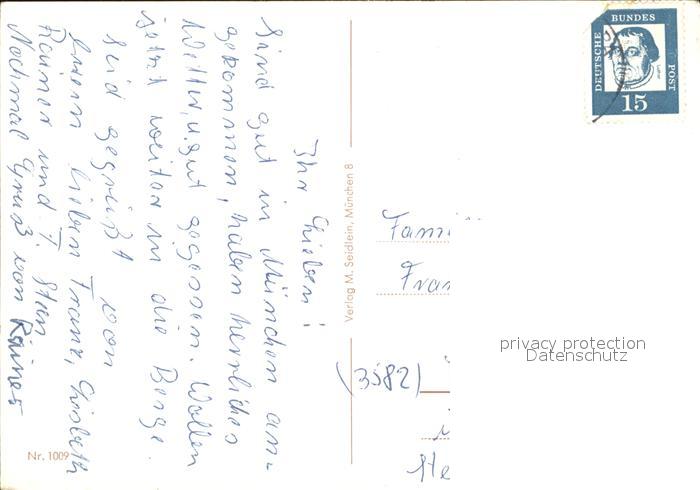 Ihr Lieben!
Sind gut in München an-
gekommen, haben herrliches
Wetter, u. gut gegessen. Wollen
jetzt weiter in die Berge.
Seid gegrüßt von
Euern lieben Franz, Lisbeth
Rainer und T.
Nochmal Gruß von Rainer
Nr. 1009
Verlag M. Seidlein, München 8
DEUTSCHE
BUNDES
POST
15
Fami
Fran
(3582)
He
privacy protection
Datenschutz